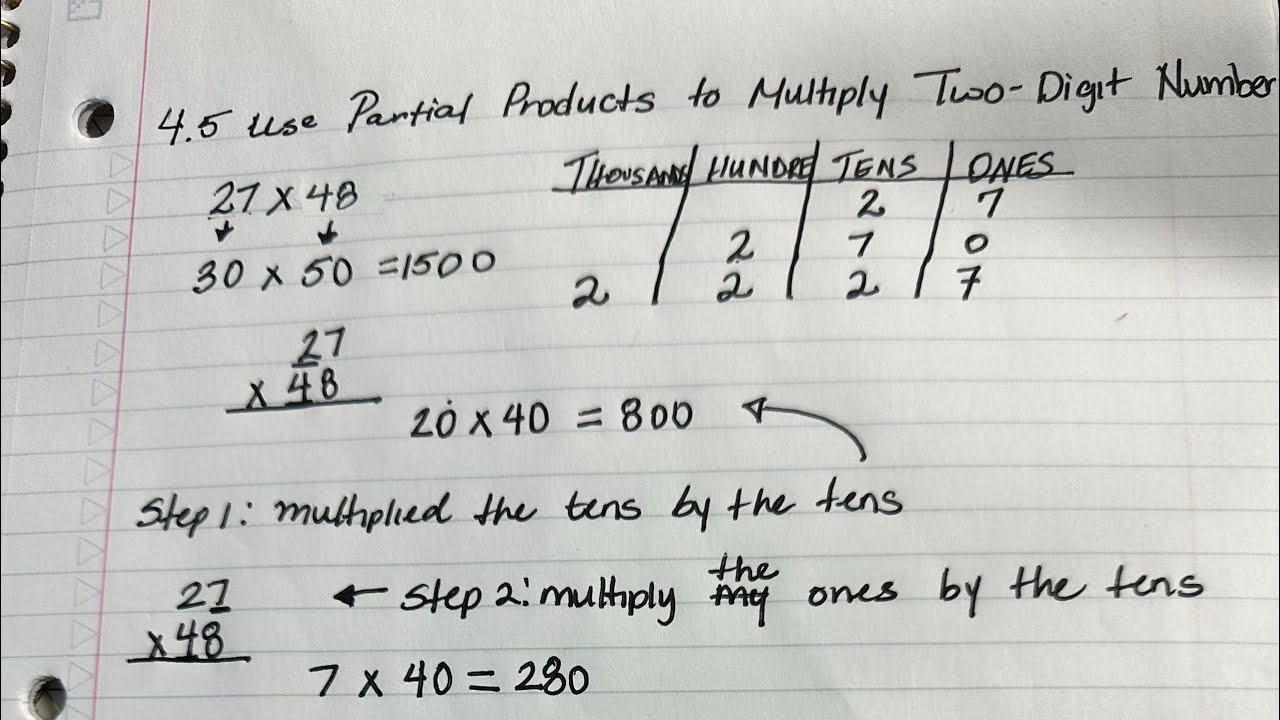 4.5 Use Partial Products to Multiply Two-Digit Number
27 x 48
30 x 50 = 1500
THOUSANDS HUNDRE TENS ONES
2 7
2 7 0
2 2 2 7
27
x 48
20 x 40 = 800
Step 1: multiplied the tens by the tens
27
x 48
the
← Step 2: multiply my ones by the tens
7 x 40 = 280